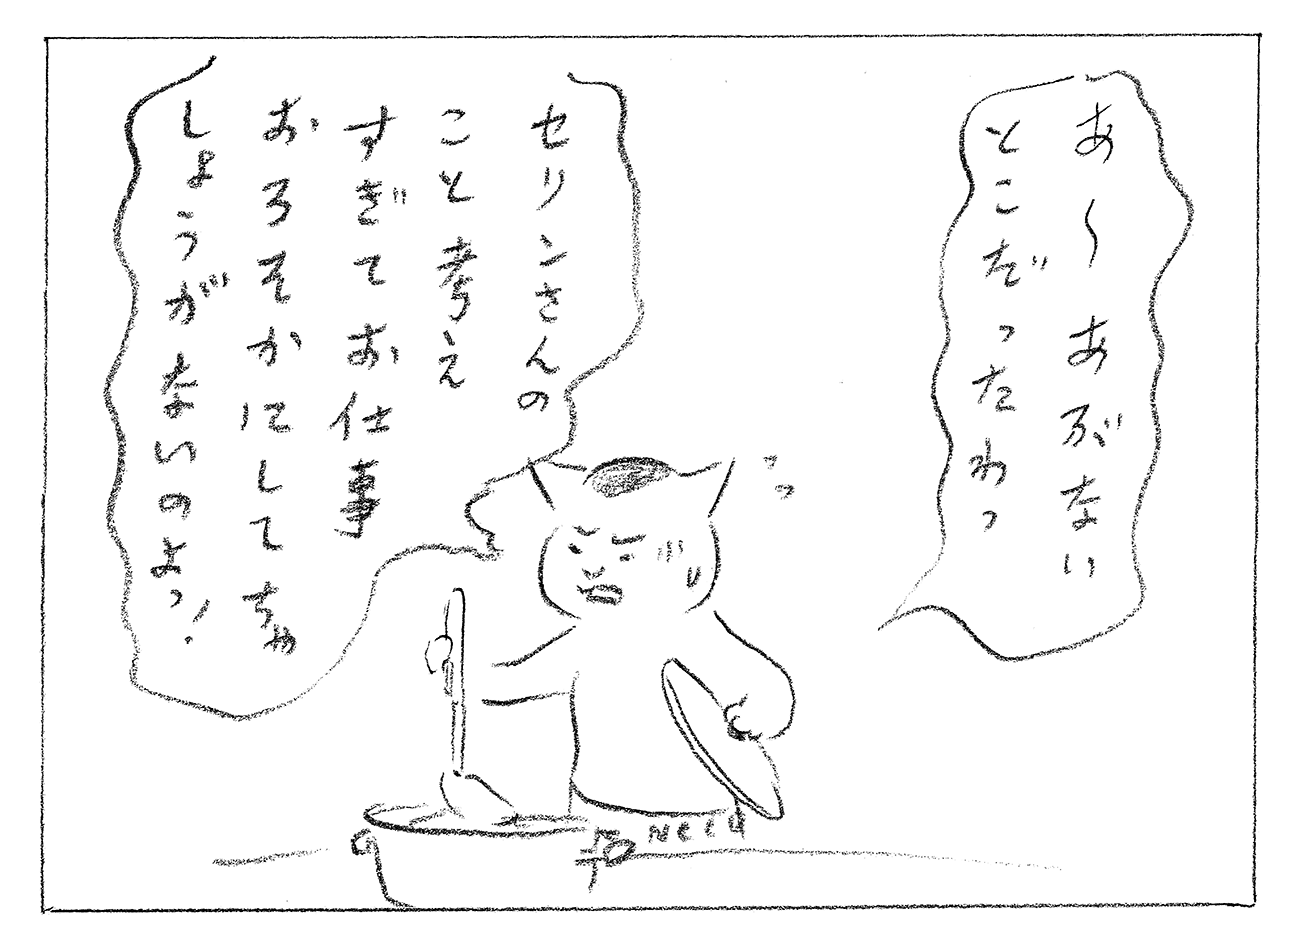 あ〜あぶない
とこだったわっ
セリンさんの
こと考え
すぎてお仕事
おろそかにしてちゃ
しょうがないのよっ!